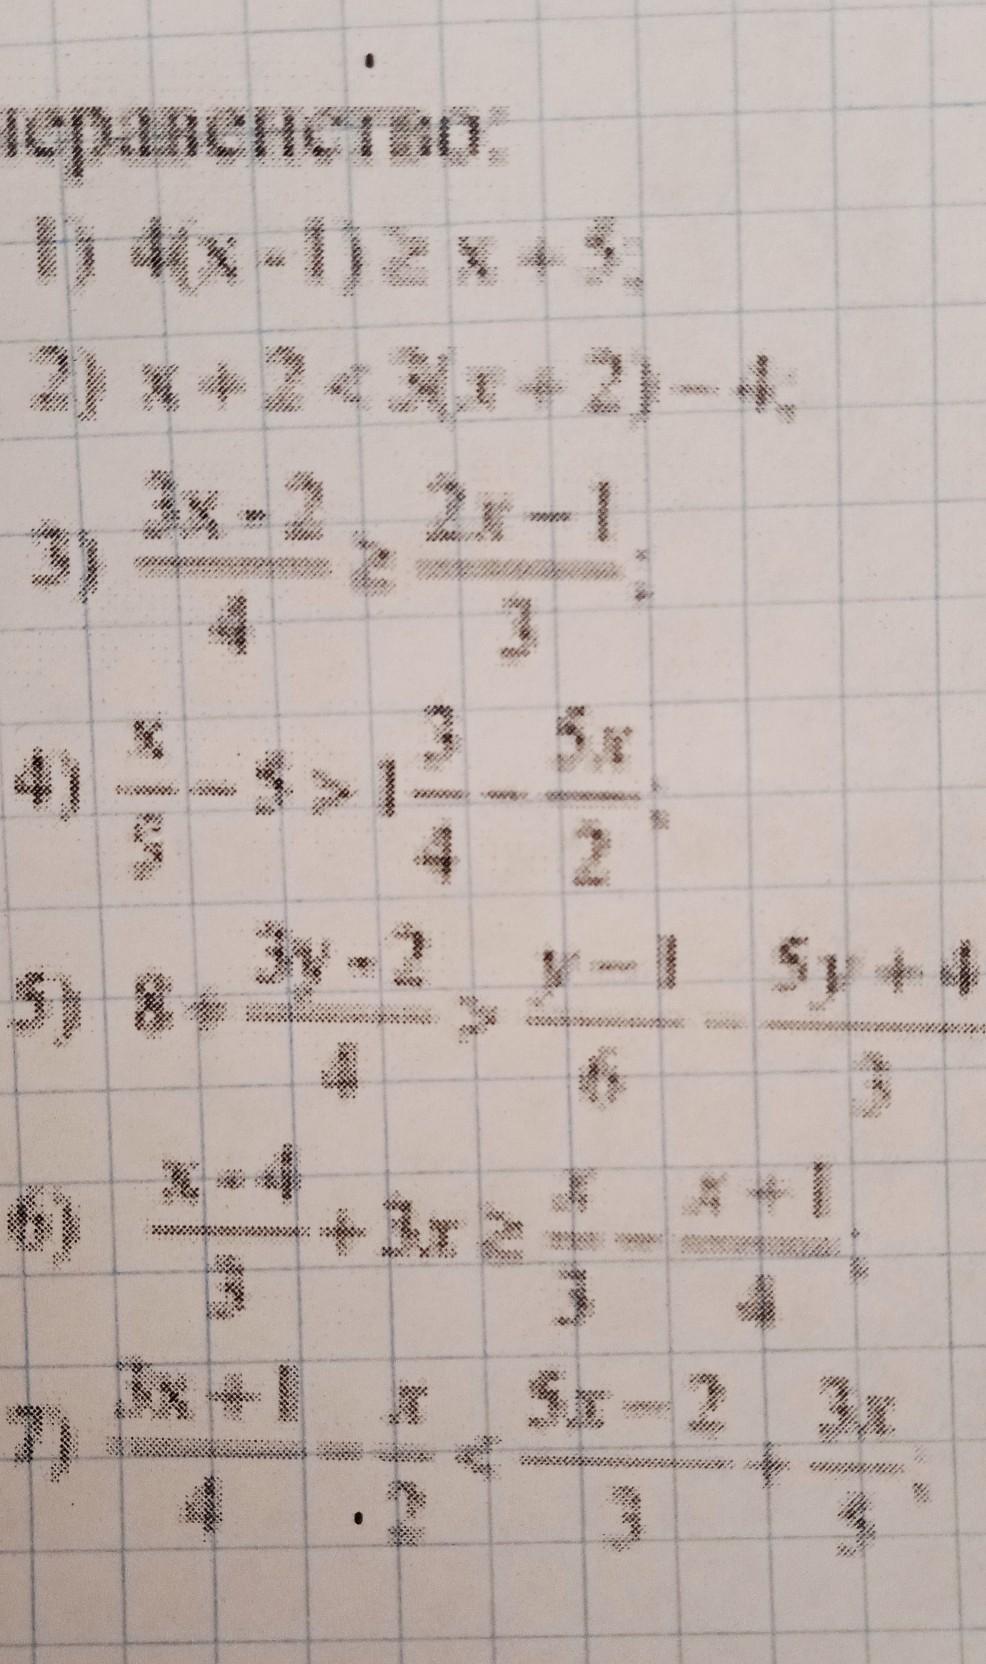 неравенство:
1) 4(x - 1) ≥ x + 5;
2) x + 2 < 3(x + 2) – 4;
3) (3x - 2)/4 ≥ (2x – 1)/3;
4) x/5 – 5 > 1 3/4 – 5x/2;
5) 8 + (3y - 2)/4 > (y – 1)/6 – (5y + 4)/3
6) (x - 4)/3 + 3x ≥ x/3 – (x + 1)/4;
7) (3x + 1)/4 – x/2 < (5x – 2)/3 + 3x/5;